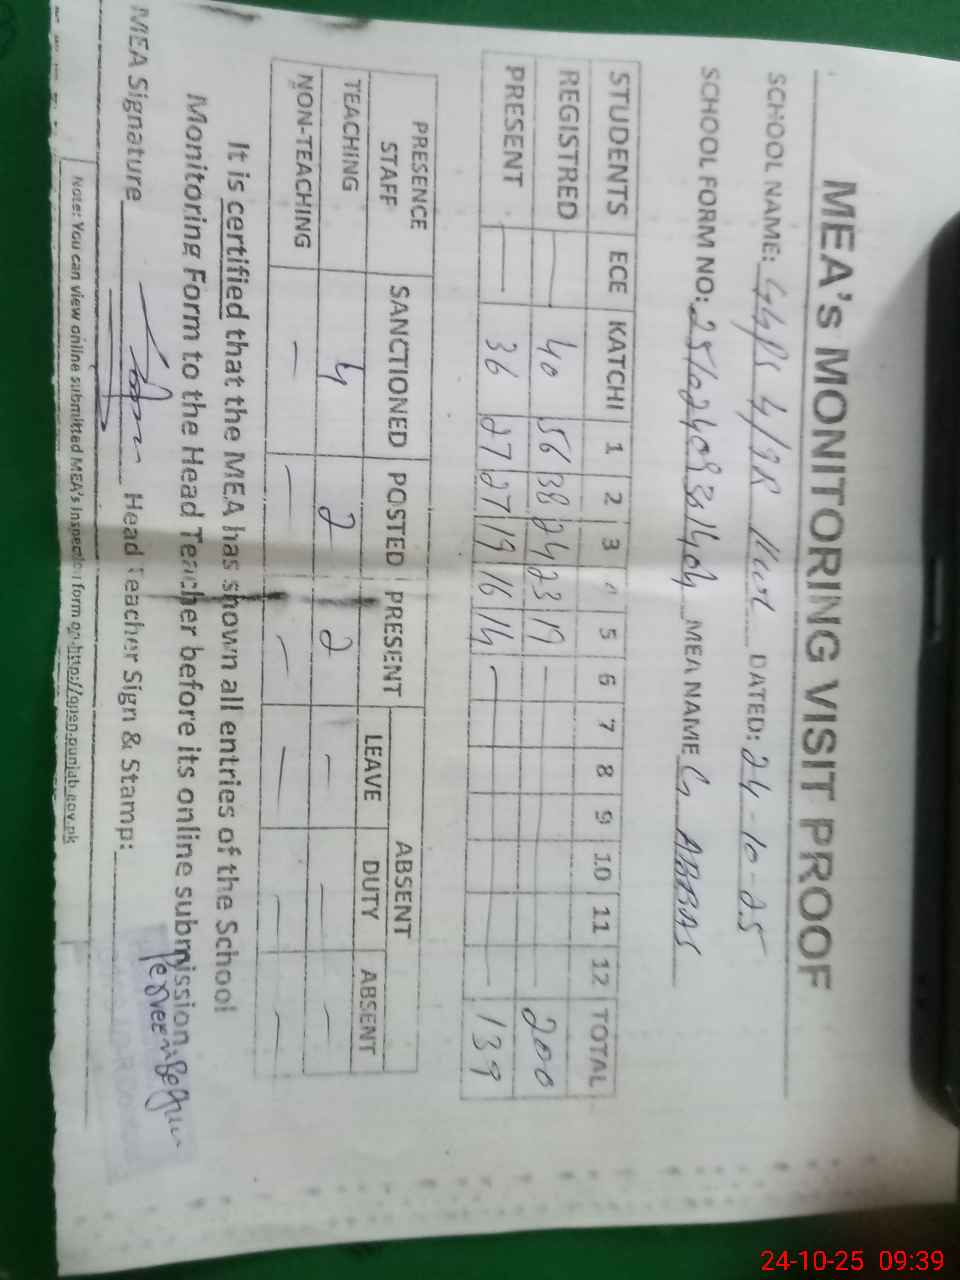 MEA's MONITORING VISIT PROOF
SCHOOL NAME: GGPS 4/9R DATED: 24-10-25
SCHOOL FORM NO: MEA NAME G ABBAS
STUDENTS ECE KATCHI 1 2 3 5 6 7 8 9 10 11 12 TOTAL
REGISTRED — 40 56 38 24 23 19 — 200
PRESENT — 36 27 27 19 16 14 — 139
PRESENCE STAFF SANCTIONED POSTED PRESENT ABSENT
LEAVE DUTY ABSENT
TEACHING 4 2 2 — — —
NON-TEACHING — — — — — —
It is certified that the MEA has shown all entries of the School
Monitoring Form to the Head Teacher before its online submission.
MEA Signature Head Teacher Sign & Stamp:
Note: You can view online submitted MEA's Inspection form on http://open.punjab.gov.pk
24-10-25 09:39